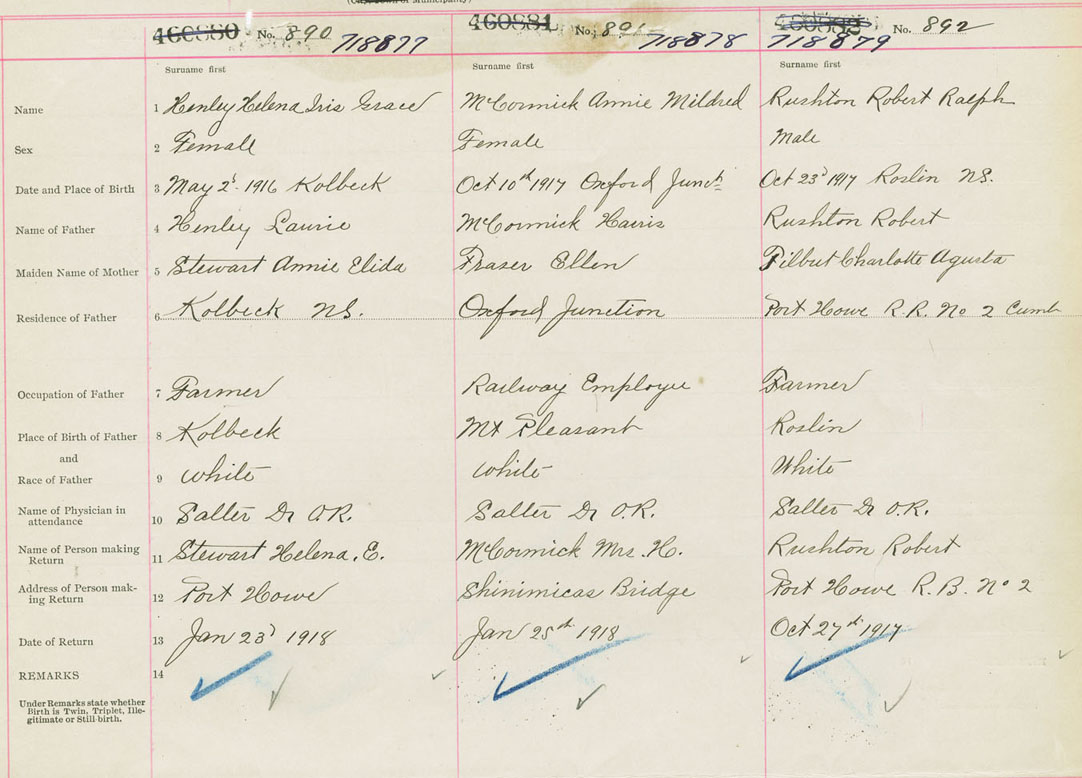 460880 No. 890 718877 460881 No. 891 718878 No. 892 718879
Surname first Surname first Surname first
Name 1 Henley Helena Iris Grace McCormick Annie Mildred Rushton Robert Ralph
Sex 2 Female Female Male
Date and Place of Birth 3 May 2d 1916 Kolbeck Oct 10th 1917 Oxford Junct Oct 23d 1917 Roslin NS.
Name of Father 4 Henley Laurie McCormick Harris Rushton Robert
Maiden Name of Mother 5 Stewart Annie Elida Fraser Ellen Charlotte Agusta
Residence of Father 6 Kolbeck NS. Oxford Junction Port Howe R.R. No 2 Cumb
Occupation of Father 7 Farmer Railway Employee Farmer
Place of Birth of Father 8 Kolbeck Mt Pleasant Roslin
and
Race of Father 9 White White White
Name of Physician in
attendance 10 Salter Dr O.R. Salter Dr O.R. Salter Dr O.R.
Name of Person making
Return 11 Stewart Helena. E. McCormick Mrs. H. Rushton Robert
Address of Person mak-
ing Return 12 Port Howe Shinimicas Bridge Port Howe R.B. No 2
Date of Return 13 Jan 23d 1918 Jan 25th 1918 Oct 27th 1917
REMARKS 14
Under Remarks state whether
Birth is Twin, Triplet, Ille-
gitimate or Still-birth.